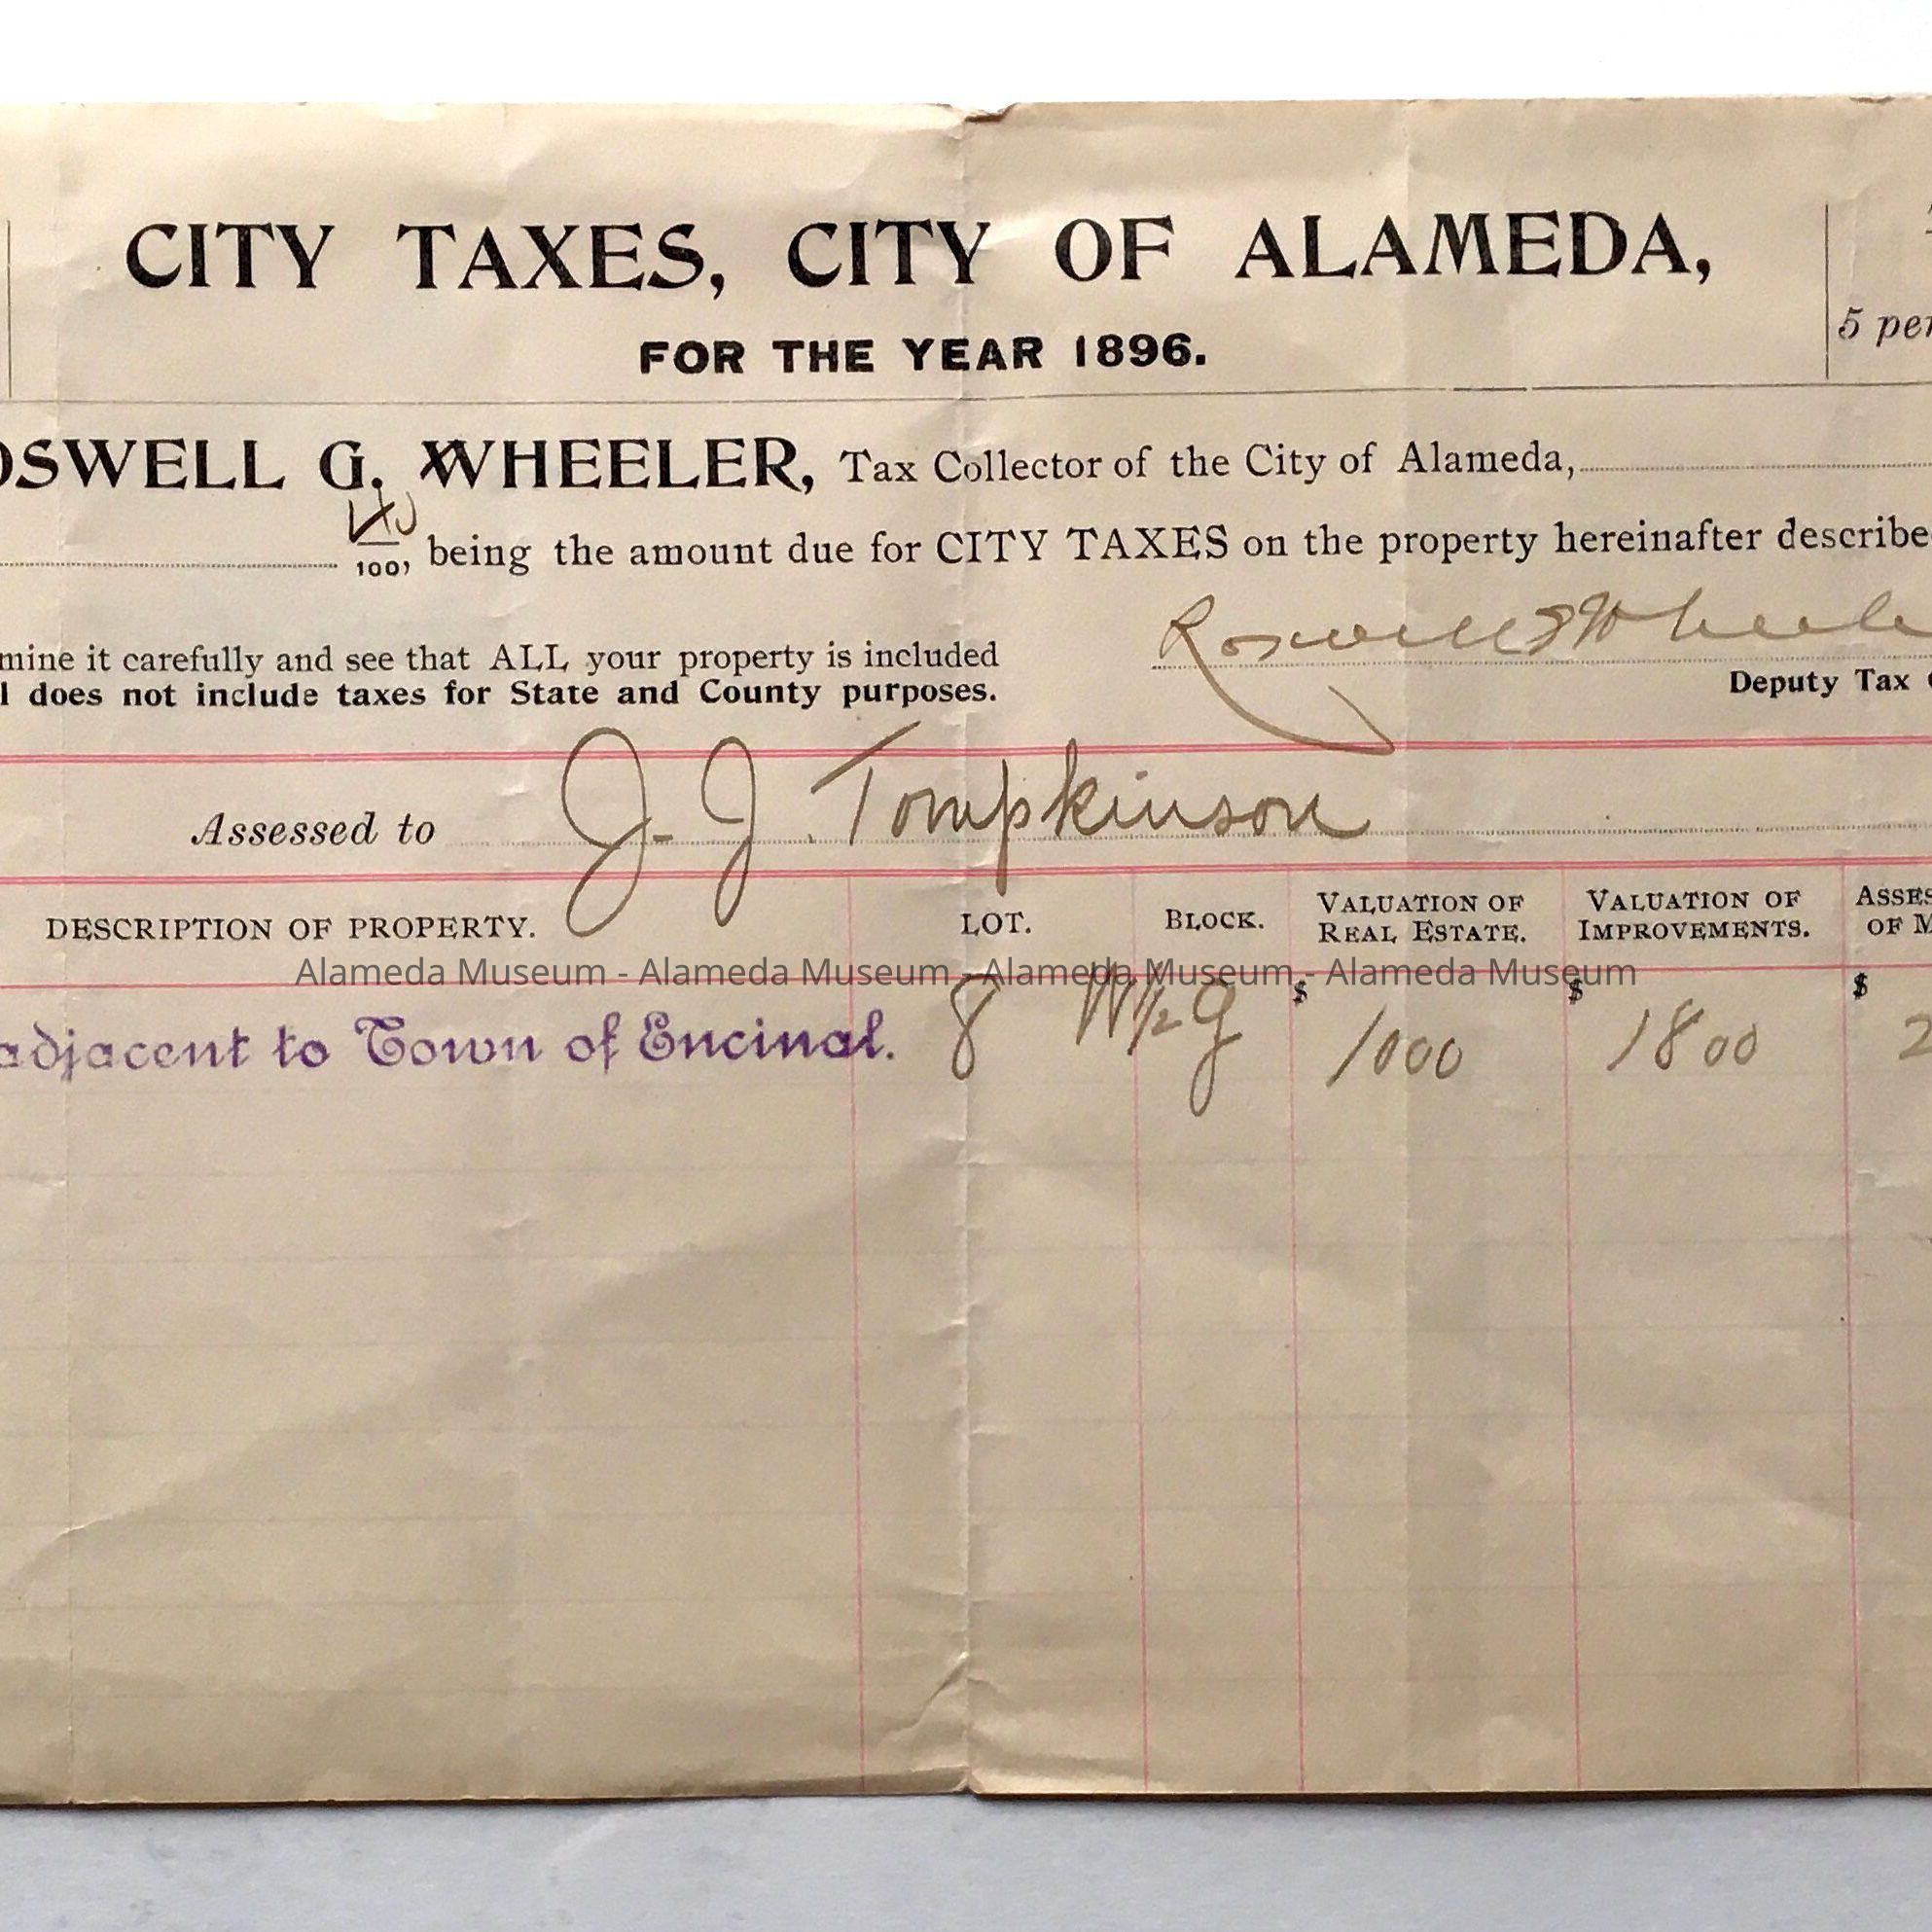 CITY TAXES, CITY OF ALAMEDA,
FOR THE YEAR 1896.
5 per
OSWELL G. WHEELER, Tax Collector of the City of Alameda,
100, being the amount due for CITY TAXES on the property hereinafter describe
mine it carefully and see that ALL your property is included
l does not include taxes for State and County purposes.
Roswell G Wheele
Deputy Tax C
Assessed to J. J. Tompkinson
DESCRIPTION OF PROPERTY. LOT. BLOCK. VALUATION OF REAL ESTATE. VALUATION OF IMPROVEMENTS. ASSES OF M
Alameda Museum - Alameda Museum - Alameda Museum - Alameda Museum
adjacent to Town of Encinal. 8 W 1/2 g $ 1000 $ 1800 $ 2